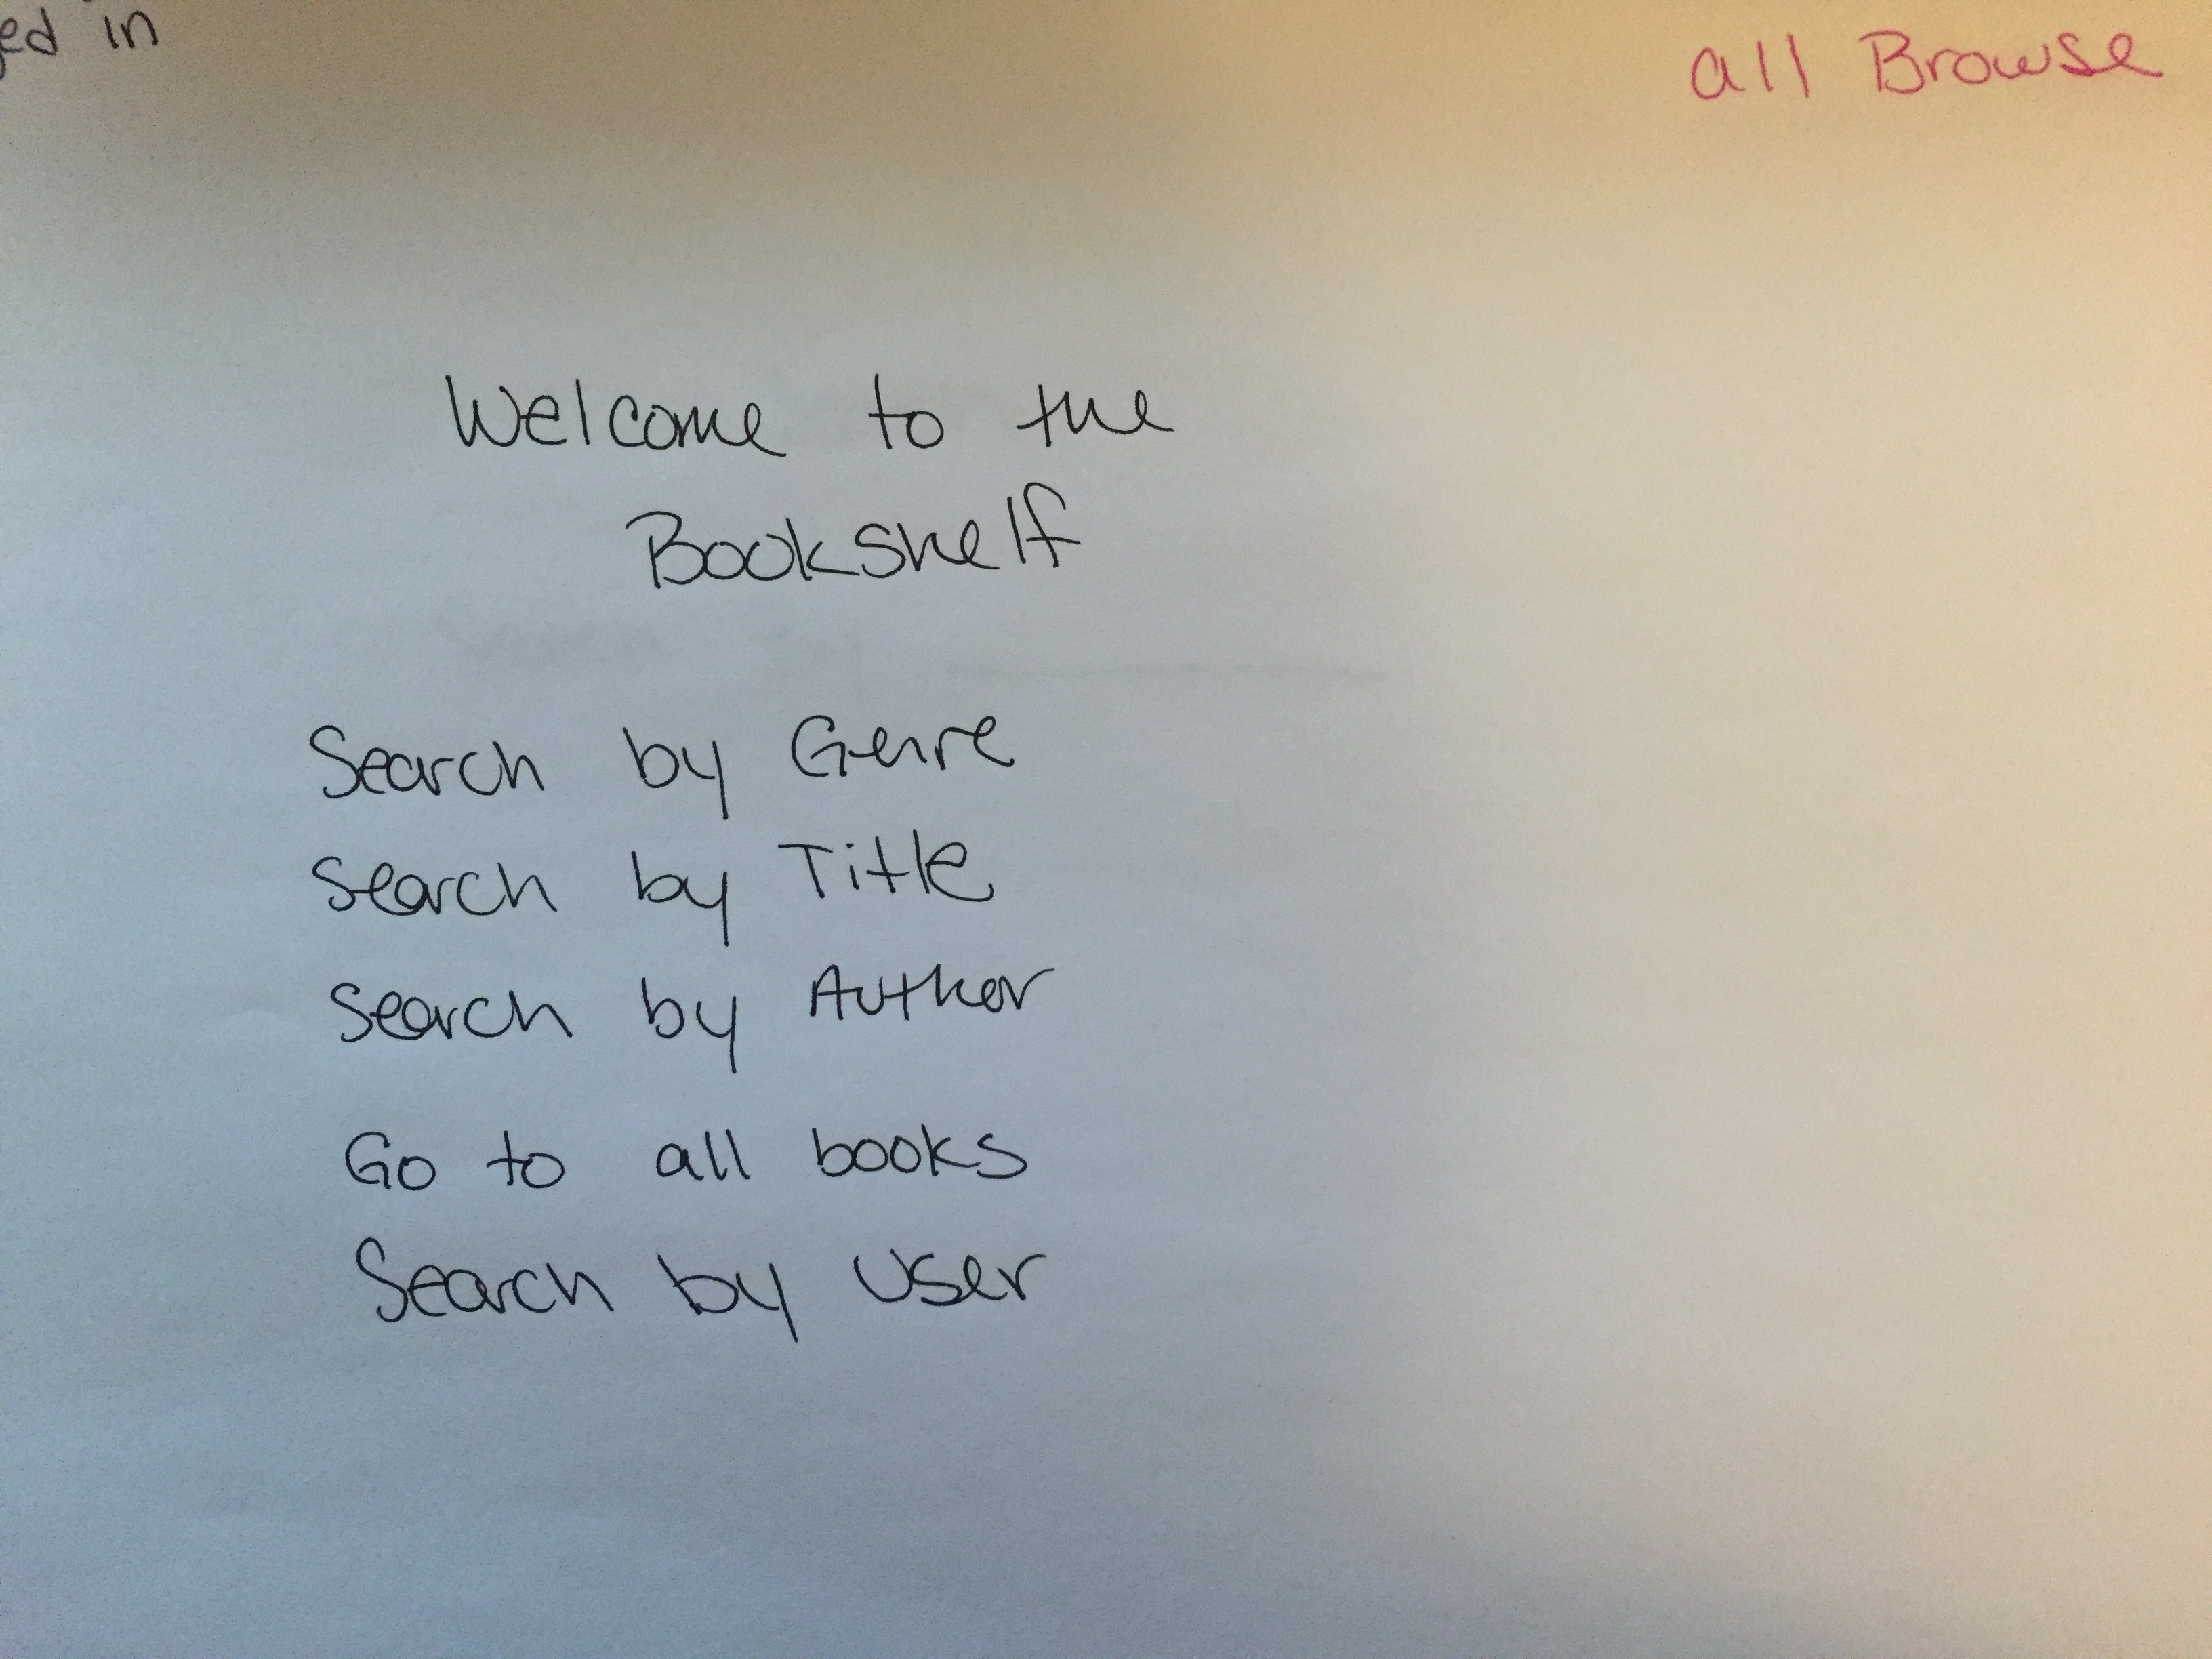 in
all Browse
Welcome to the
Bookshelf
Search by Genre
Search by Title
Search by Author
Go to all books
Search by User